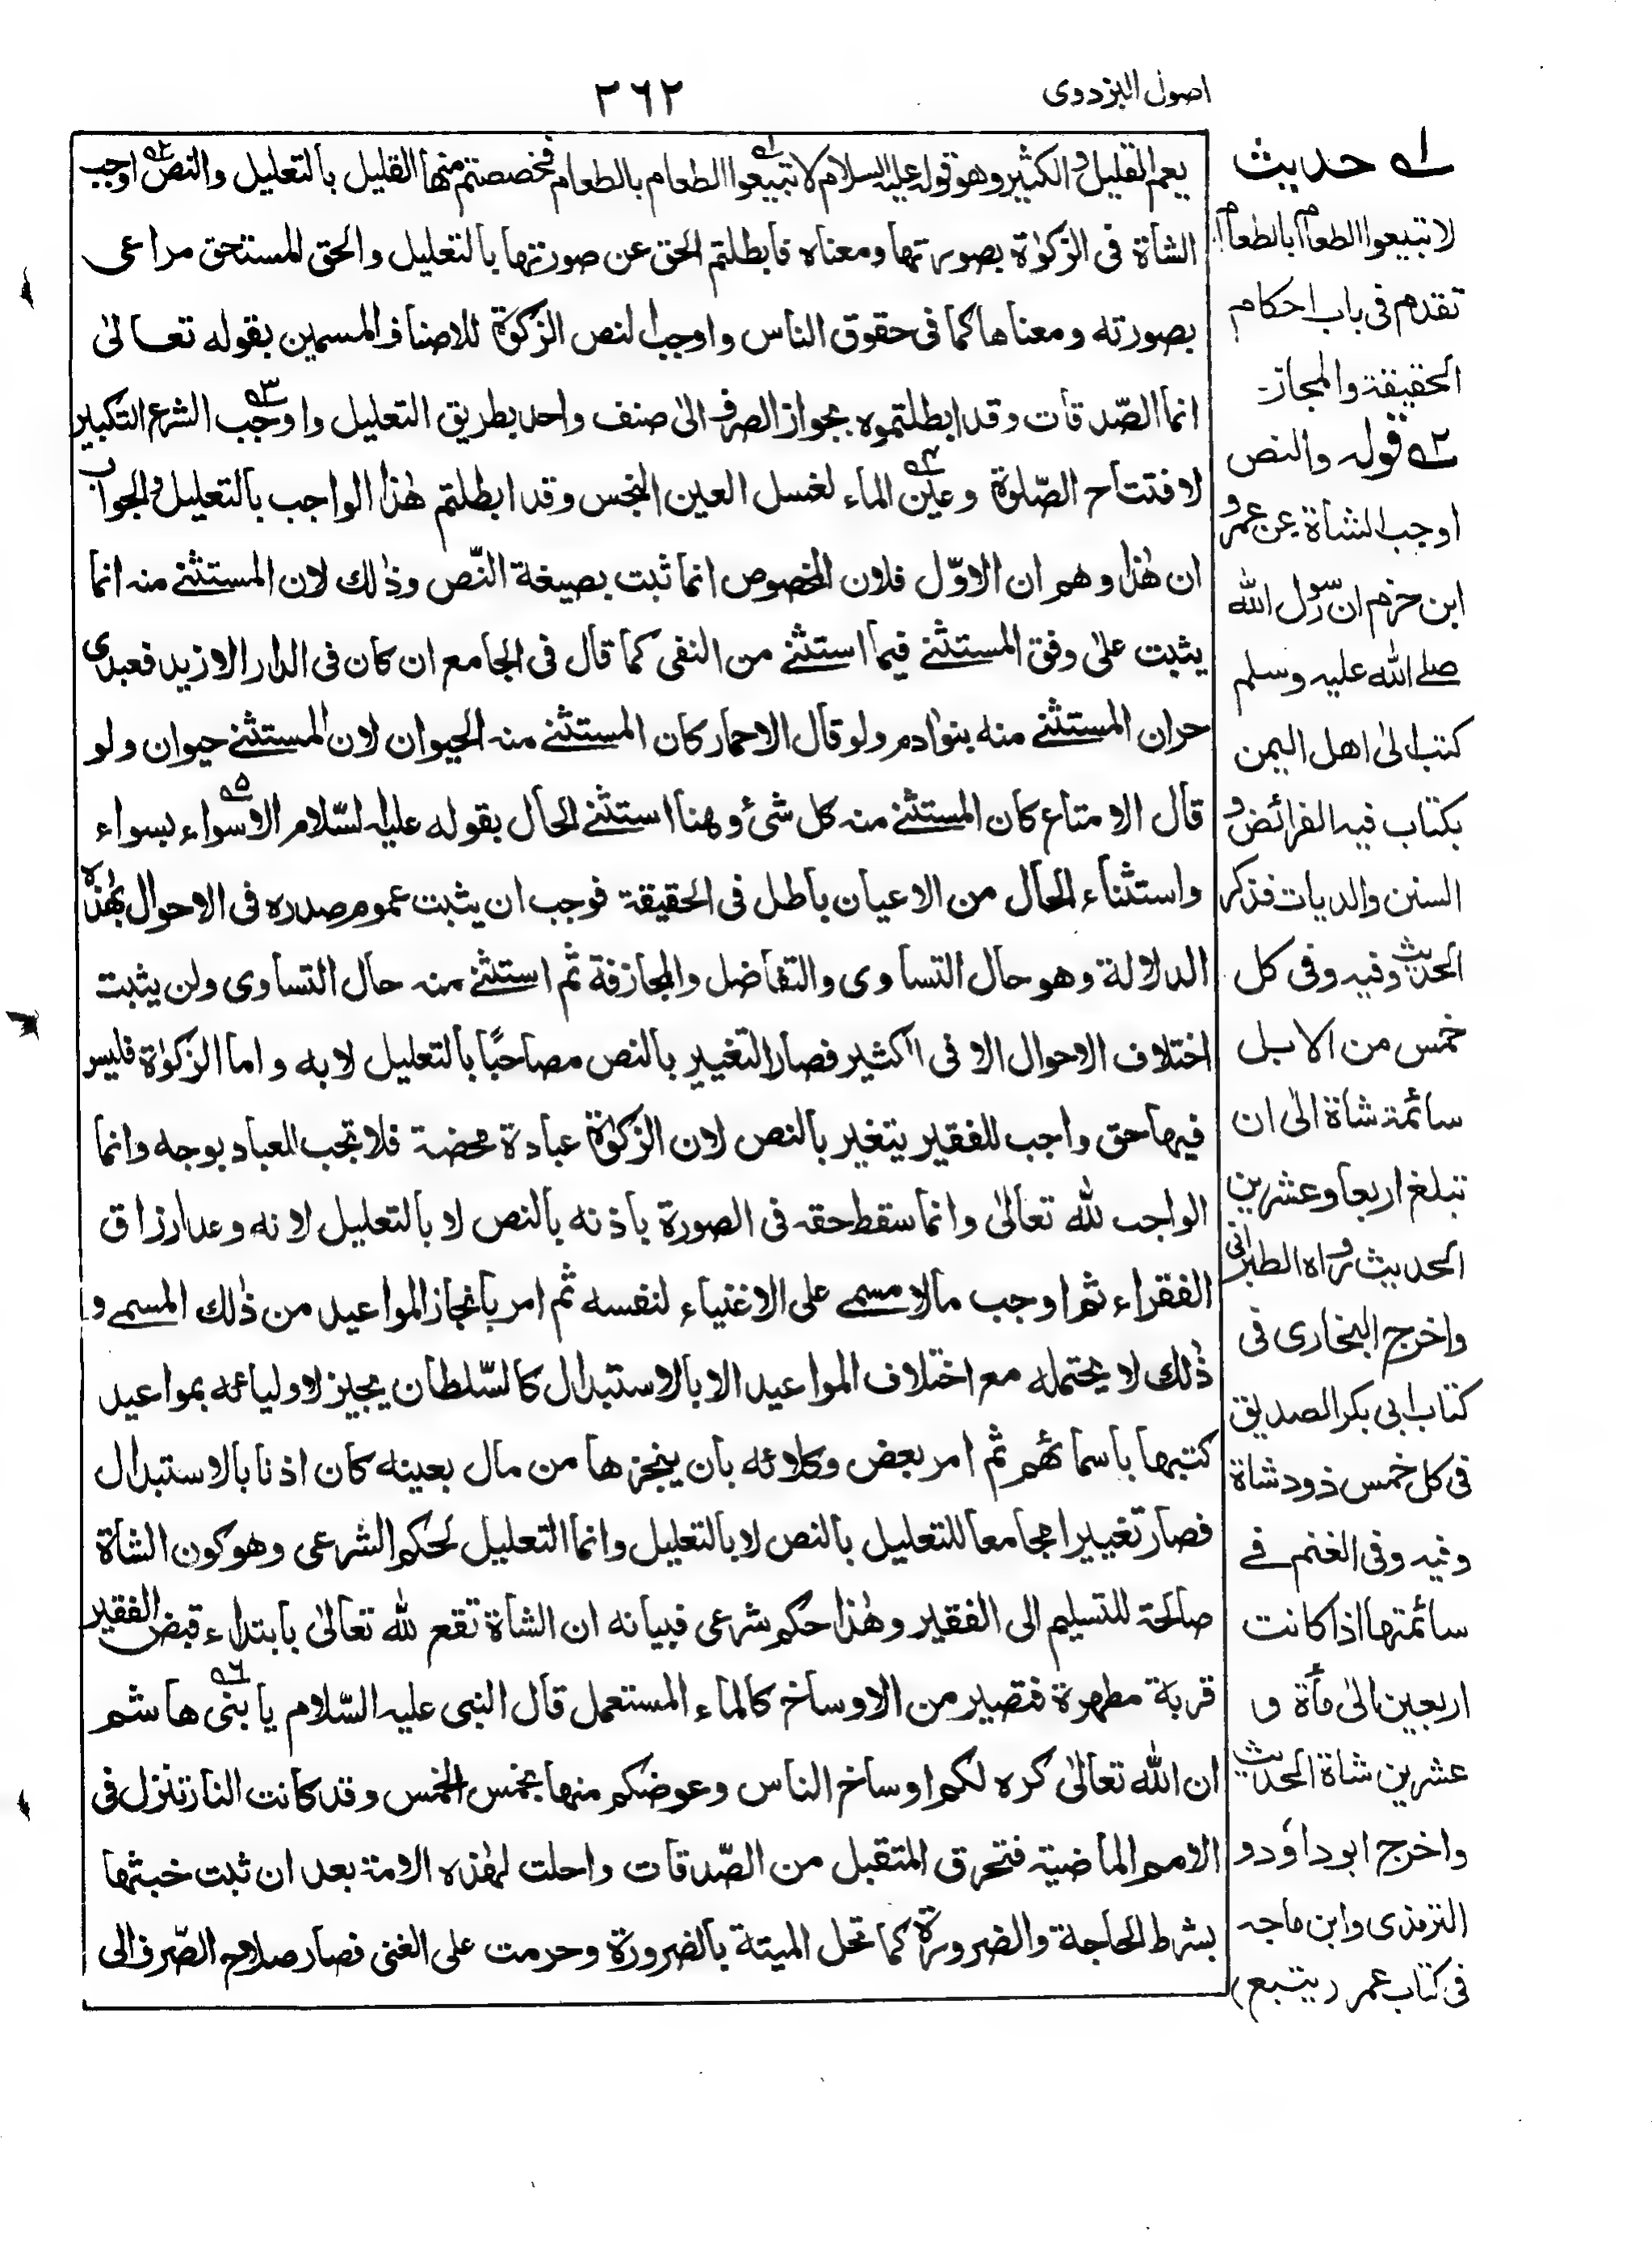 اصول البزدوی
۲۶۲
يعم القليل والكثير وهو قوله عليه السلام لا تبيعوا الطعام بالطعام فخصصتم منها القليل بالتعليل والنص اوجب
الشاة فى الزكوٰة بصورتها ومعناه فابطلتم الحق عن صورتها بالتعليل والحق للمستحق مراعى
بصورته ومعناها كما فى حقوق الناس واوجب النص الزكوٰة للاصناف المسمين بقوله تعالىٰ
انما الصّدقات وقد ابطلتموه بجواز الصرف الىٰ صنف واحد بطريق التعليل واوجب الشرع التكبير
لافتتاح الصّلوٰة وعين الماء لغسل العين النجس وقد ابطلتم هٰذا الواجب بالتعليل والجواب
ان هٰذا وهم ان الاوّل فلان الخصوص انما ثبت بصيغة النّص وذٰلك لان المستثنے منه انما
يثبت علىٰ وفق المستثنے فيما استثنے من النفى كما قال فى الجامع ان كان فى الدار الا زيد فعبدى
حر ان المستثنے منه بنو اٰدم ولو قال الا حمار كان المستثنے منه الحيوان لان المستثنے حيوان ولو
قال الا متاع كان المستثنے منه كل شئ وهنا استثنے الحال بقوله عليه السّلام الا سواء بسواء
واستثناء الحال من الاعيان باطل فى الحقيقة فوجب ان يثبت عموم صدره فى الاحوال بهٰذه
الدلالة وهو حال التساوى والتفاضل والمجازفة ثم استثنے منه حال التساوى ولن يثبت
اختلاف الاحوال الا فى الكثير فصار التغيير بالنص مصاحبًا بالتعليل لا به واما الزكوٰة فليس
فيها حق واجب للفقير يتغير بالنص لان الزكوٰة عبادة محضة فلا تجب للعباد بوجه وانما
الواجب لله تعالىٰ وانما سقط حقه فى الصورة باذنه بالنص لا بالتعليل لانه وعد ارزاق
الفقراء ثم اوجب مالا مسمے على الاغنياء لنفسه ثم امر بانجاز المواعيد من ذٰلك المسمے و
ذٰلك لا يحتمله مع اختلاف المواعيد الا بالاستبدال كالسّلطان يجيز لاوليائه بمواعيد
كتبها باسمائهم ثم امر بعض وكلائه بان ينجزها من مال بعينه كان اذنا بالاستبدال
فصار تغييرا مجامعا للتعليل بالنص لا بالتعليل وانما التعليل لحكم الشرعى وهو كون الشاة
صالحة للتسليم الى الفقير وهٰذا حكم شرعى فبيانه ان الشاة تقع لله تعالىٰ بابتداء قبض الفقير
قربة مطهرة فتصير من الاوساخ كالماء المستعمل قال النبى عليه السّلام يا بنى هاشم
ان الله تعالىٰ كره لكم اوساخ الناس وعوضكم منها بخمس الخمس وقد كانت النار تنزل فى
الامم الماضية فتحرق المتقبل من الصّدقات واحلت لهٰذه الامة بعد ان ثبت خبثها
بشرط الحاجة والضرورة كما تحل الميتة بالضرورة وحرمت على الغنى فصار صلاح الصّرف الى
۱ حديث
لا تبيعوا الطعام بالطعام
تقدم فى باب احكام
الحقيقة والمجاز۔
۲ قوله والنص
اوجب الشاة عن عمرو
ابن حزم ان رسول الله
صلے الله عليه وسلم
كتب الىٰ اهل اليمن
بكتاب فيه الفرائض و
السنن والديات فذكر
الحديث وفيه وفى كل
خمس من الابل
سائمة شاة الىٰ ان
تبلغ اربعا وعشرين
الحديث رواه الطبرانى
واخرج البخارى فى
كتاب ابى بكر الصديق
فى كل خمس ذود شاة
وفيه وفى الغنم فے
سائمتها اذا كانت
اربعين الىٰ مأة و
عشرين شاة الحديث
واخرج ابو داؤد و
الترمذى وابن ماجه
فى كتاب عمر (يتبع)